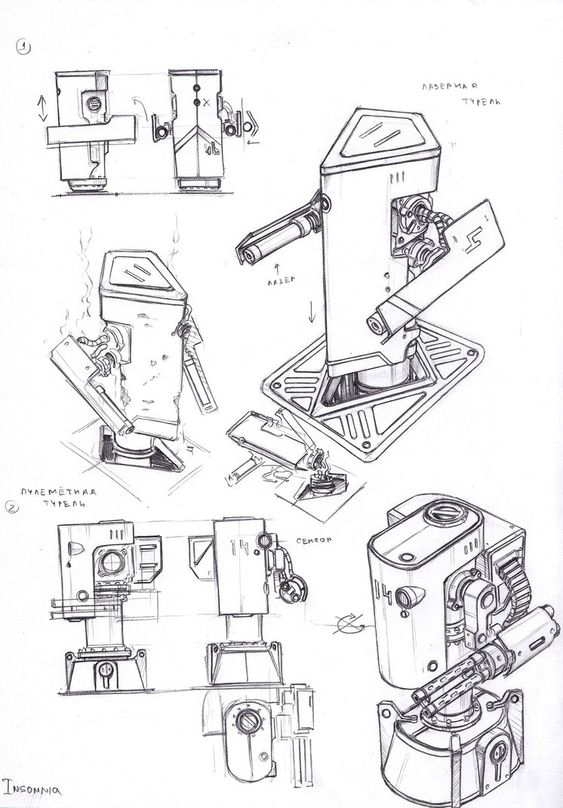 1
ЛАЗЕРНАЯ
ТУРЕЛЬ
X
46
ЛАЗЕР
ПУЛЕМЁТНАЯ
ТУРЕЛЬ
2
СЕНСОР
14
14
INSOMNIA